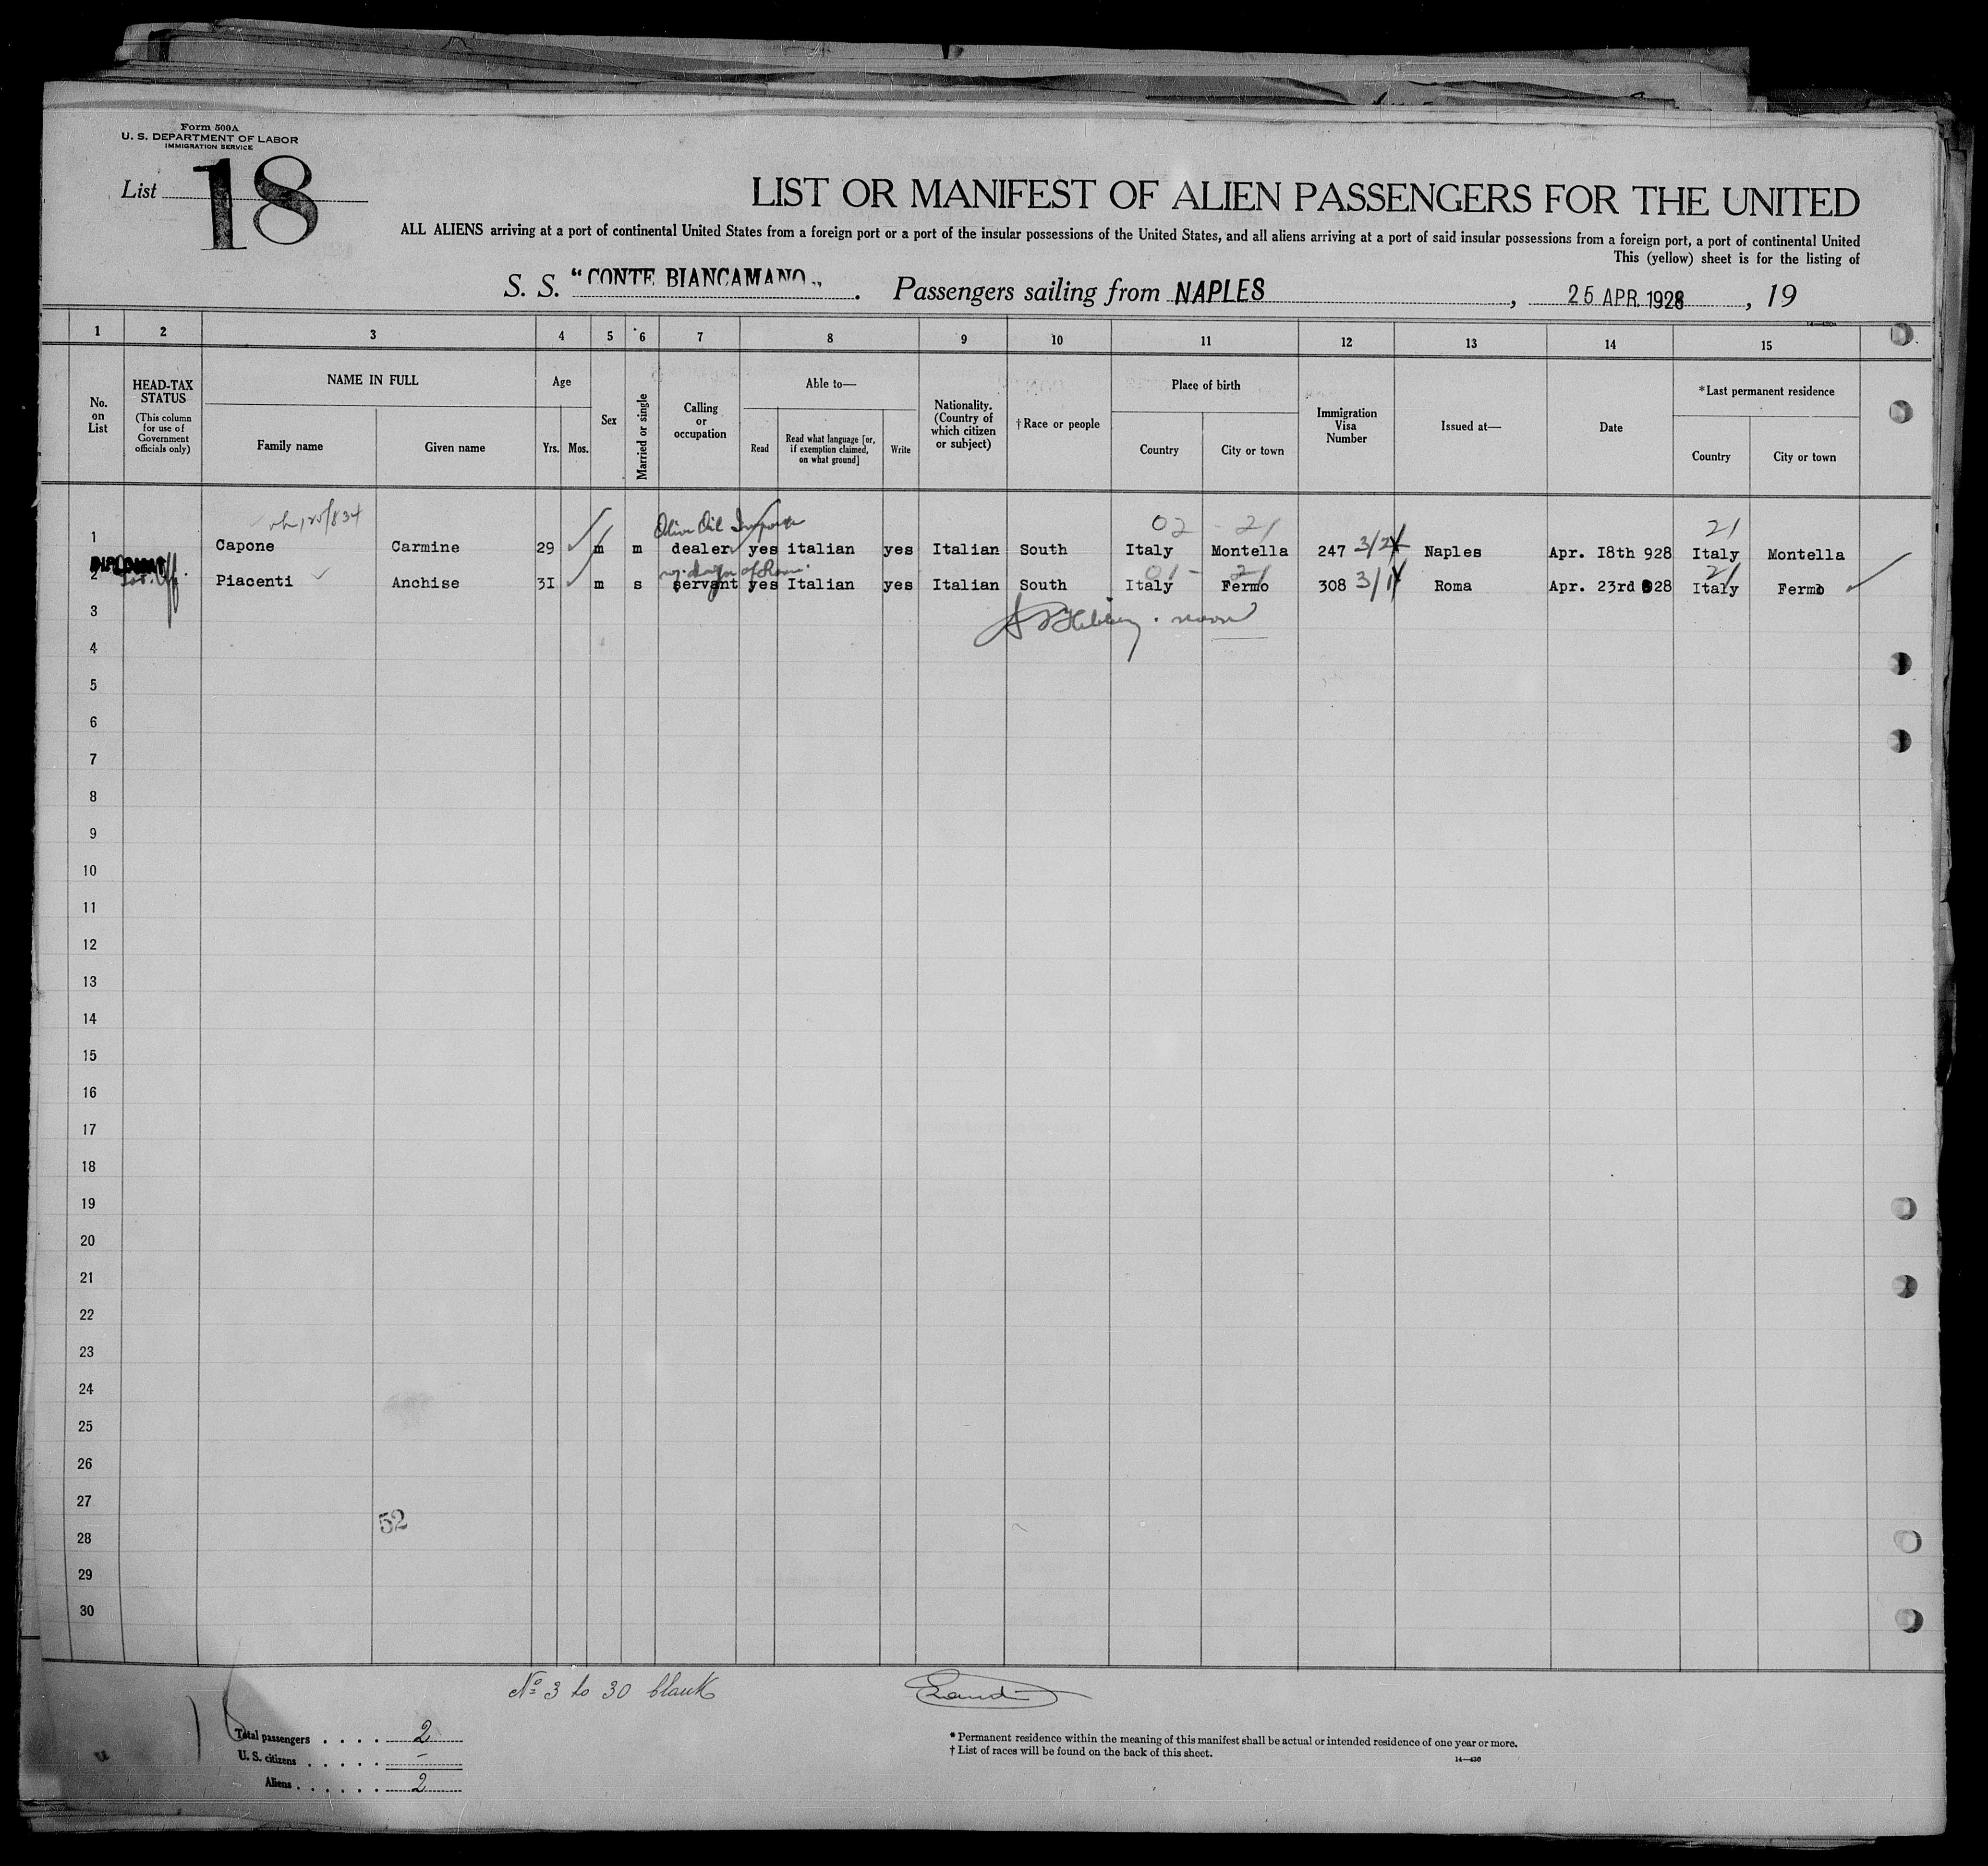 Form 500A
U. S. DEPARTMENT OF LABOR
IMMIGRATION SERVICE
List 18
LIST OR MANIFEST OF ALIEN PASSENGERS FOR THE UNITED
ALL ALIENS arriving at a port of continental United States from a foreign port or a port of the insular possessions of the United States, and all aliens arriving at a port of said insular possessions from a foreign port, a port of continental United
This (yellow) sheet is for the listing of
S. S. "CONTE BIANCAMANO„ . Passengers sailing from NAPLES , 25 APR. 1928 , 19
14—430A
1 2 3 4 5 6 7 8 9 10 11 12 13 14 15
No. on List
HEAD-TAX STATUS
(This column for use of Government officials only)
NAME IN FULL
Family name
Given name
Age
Yrs.
Mos.
Sex
Married or single
Calling or occupation
Able to—
Read
Read what language [or, if exemption claimed, on what ground]
Write
Nationality. (Country of which citizen or subject)
†Race or people
Place of birth
Country
City or town
Immigration Visa Number
Issued at—
Date
*Last permanent residence
Country
City or town
Olive Oil 02 21 21
1 Capone Carmine 29 m m dealer yes italian yes Italian South Italy Montella 247 3/24 Naples Apr. I8th 928 Italy Montella
DIPLOMAT
01 - 21 21
2 Piacenti Anchise 3I m s servant yes Italian yes Italian South Italy Fermo 308 3/14 Roma Apr. 23rd 928 Italy Fermo
3
4
5
6
7
8
9
10
11
12
13
14
15
16
17
18
19
20
21
22
23
24
25
26
27
52
28
29
30
Nº 3 to 30 blank
Total passengers . . . . 2
U. S. citizens . . . . . –
Aliens . . . . . . 2
* Permanent residence within the meaning of this manifest shall be actual or intended residence of one year or more.
† List of races will be found on the back of this sheet.
14—430